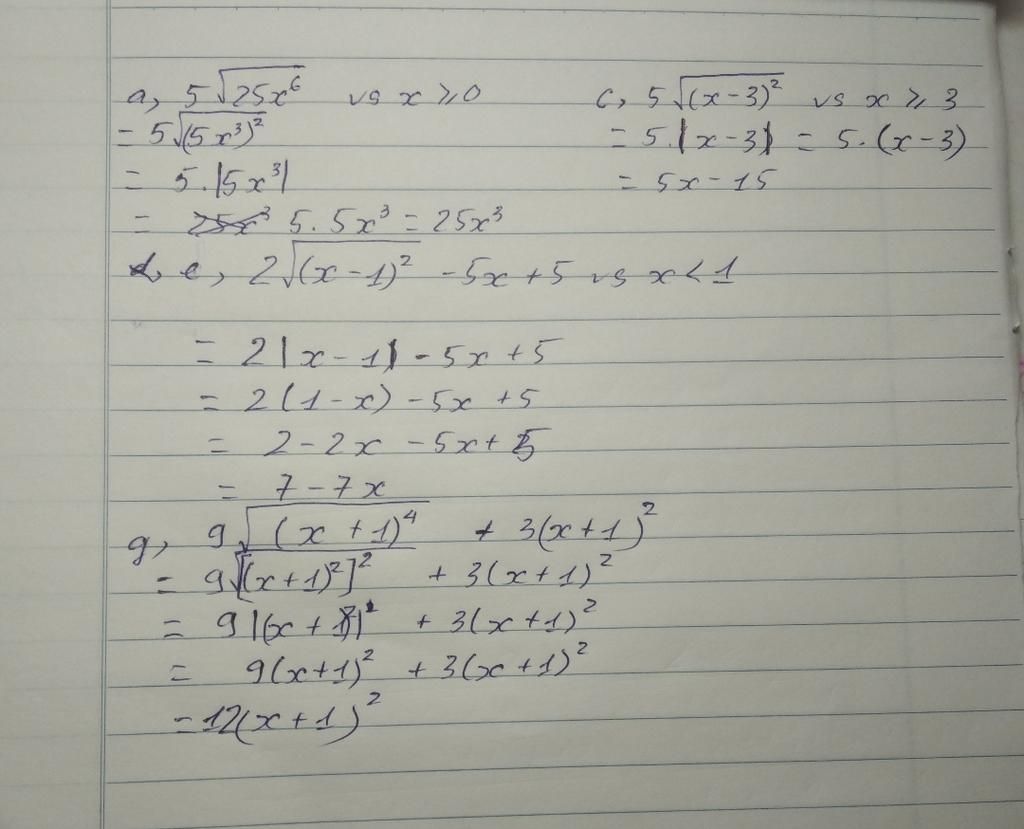 a, 5√(25x⁶) vs x ⩾ 0
= 5√((5x³)²)
= 5.|5x³|
= 5. 5x³ = 25x³
c, 5√((x-3)²) vs x ⩾ 3
= 5.|x-3| = 5.(x-3)
= 5x-15
e, 2√((x-1)²) -5x+5 vs x<1
= 2|x-1| -5x+5
= 2(1-x) -5x+5
= 2-2x -5x+5
= 7-7x
g, 9√((x+1)⁴) + 3(x+1)²
= 9√([(x+1)²]²) + 3(x+1)²
= 9|(x+1)²| + 3(x+1)²
= 9(x+1)² + 3(x+1)²
= 12(x+1)²